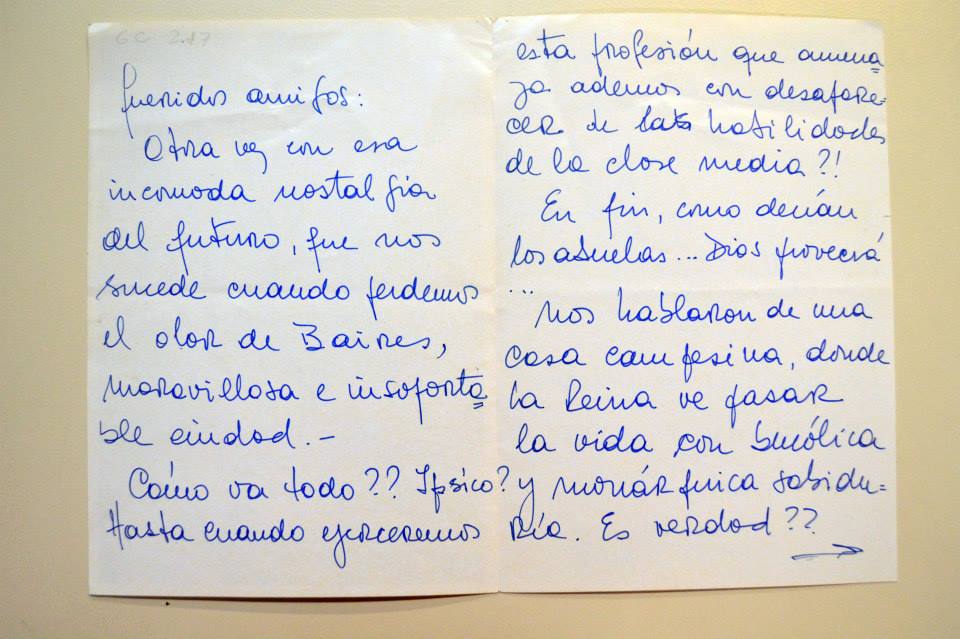 6C 2.17
Queridos amigos:
Otra vez con esa
incomoda nostalgia
del futuro, que nos
sucede cuando perdemos
el olor de Baires,
maravillosa e insoporta=
ble ciudad.-
Cómo va todo?? Ipsico?
Hasta cuando ejerceremos
esta profesión que amena=
za ademas con desapare=
cer de las habilidades
de la clase media?!
En fin, como decían
los abuelas... Dios proveerá
...
Nos hablaron de una
casa campesina, donde
la Reina ve pasar
la vida con bucólica
y monárquica sabidu=
ría. Es verdad??